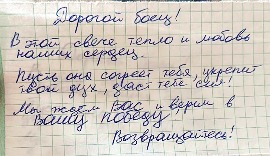 Дорогой боец!
В этой свече тепло и любовь
наших сердец.
Пусть она согреет тебя, укрепит
твой дух, даст тебе сил!
Мы ждём Вас и верим в
Вашу победу
Возвращайтесь!